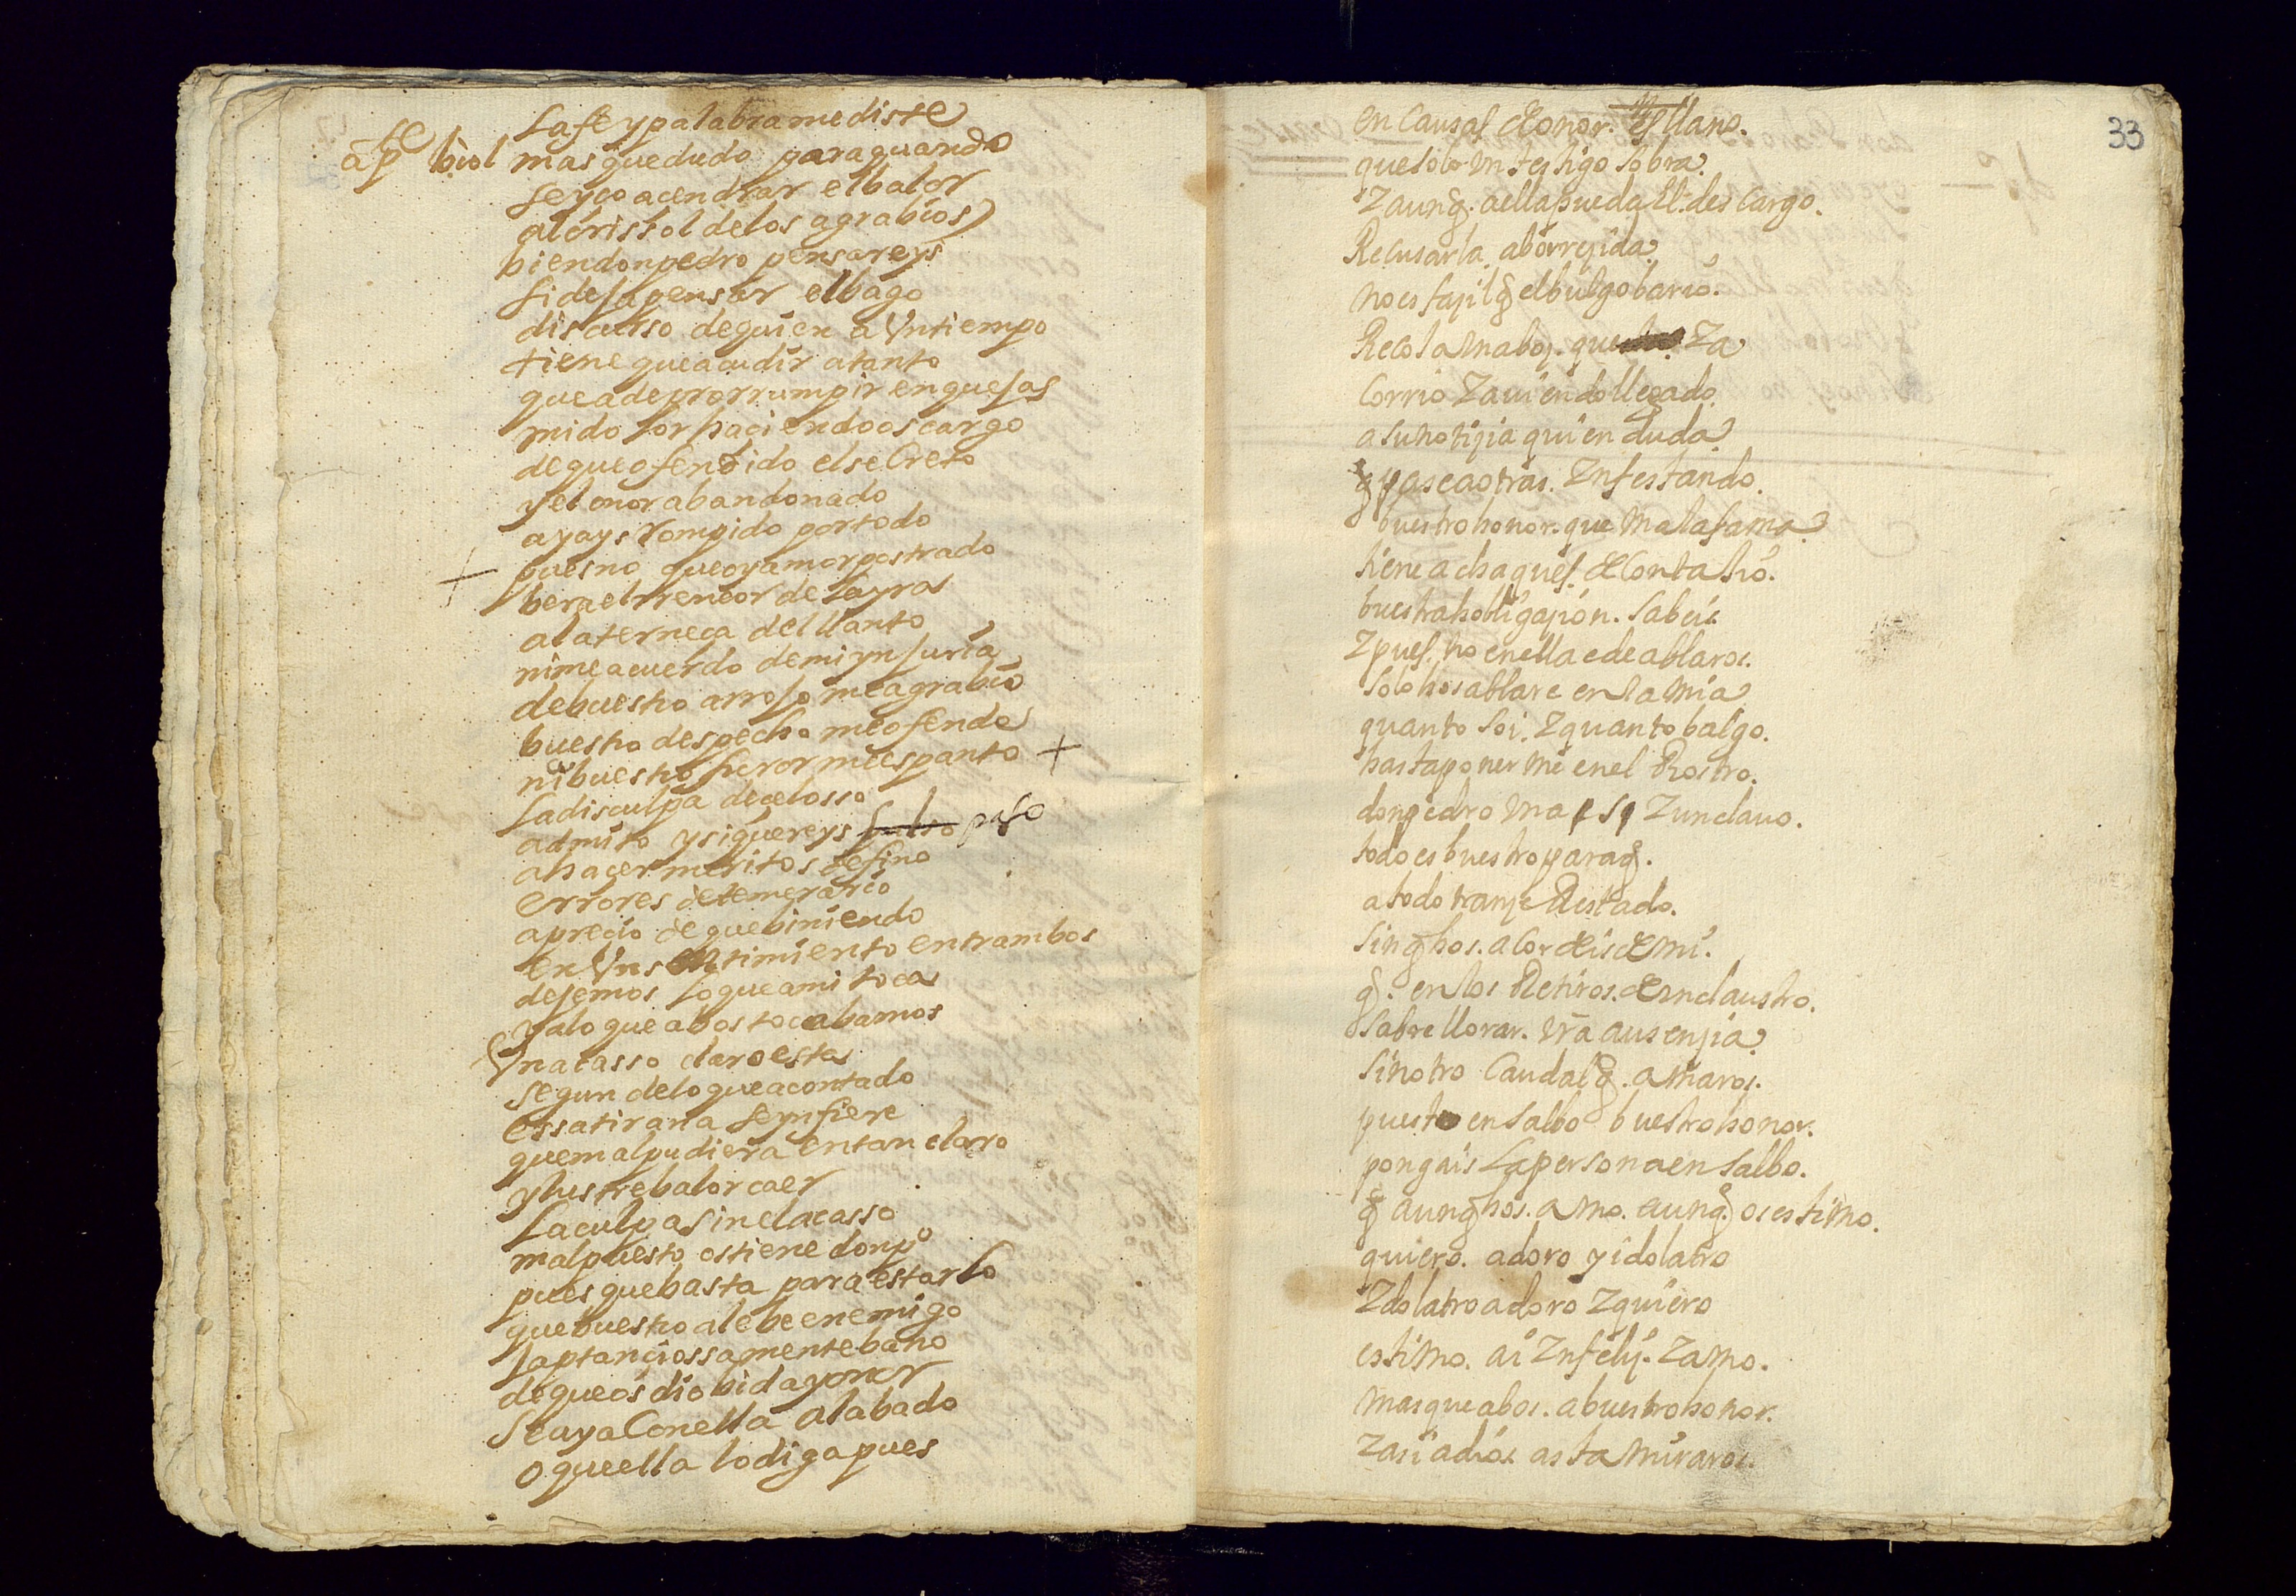 la fe y palabra me diste
apte biol mas que dudo para quando
se yço acendrar el balor
al crissol de los agrabios
bien don pedro pensareys
si deja pensar el bago
discurso de quien a Vn tiempo
tiene que acudir a tanto
que a de prorrumpir en quejas
mi dolor haçiendoos cargo
de que ofendido el secreto
y el onor abandonado
ayays rompido por todo
pues no que oy amor postrado
bera el rrencor de la yra
a la terneça del llanto
ni me acuerdo de mi ynjuria
de buestro arrojo me agrabio
buestro despecho me ofende
ni buestro furor me espanto
la disculpa de celosso
admito y si quereys paso
a haçer meritos de fino
errores de temerario
a preçio de que biniendo
en Vn sentimiento entrambos
dejemos lo que a mi toca
y a lo que a bos toca bamos
Vn acasso claro esta
segun de lo que a contado
essa tirana se ynfiere
que mal pudiera en tan claro
ylustre balor caer
la culpa sin el acasso
mal puesto os tiene don po
pues que basta para estarlo
que buestro alebe enemigo
japtançiossamente bano
de que os dio bida y onor
se aya Con ella alabado
o que ella lo diga pues
33
en causas de onor. es llano.
que solo vn testigo sobra.
Y aunq. a ella pueda El descargo.
Recusarla aborreçida
no es façil q el bulgo bario.
Recola vna boz. que Ya
Corrio Y auiendo llegado.
a su notiçia quien duda
q pase a otras. Ynfestando.
buestro honor. que mala fama
tiene achaques. de Contajio.
buestra hobligaçion. sabeis
Y pues. no en ella e de ablaros.
solo hos ablare en la mia
quanto soi. Y quanto balgo.
hasta ponerme en el Rostro.
don pedro vna s Y un clauo.
todo es buestro para q.
a todo tranze Restado.
sin q hos. acordeis de mi.
q. en los Retiros. de vn claustro.
sabre llorar. vra ausençia
sin otro Caudal q. amaros.
puesto en salbo buestro honor.
pongais La persona en salbo.
q aunq hos. amo. aunq os estimo.
quiero. adoro y idolatro
Ydolatro adoro Y quiero
estimo. ai Ynfeliz. Y amo.
mas que a bos. a buestro honor.
Y asi adios asta miraros.